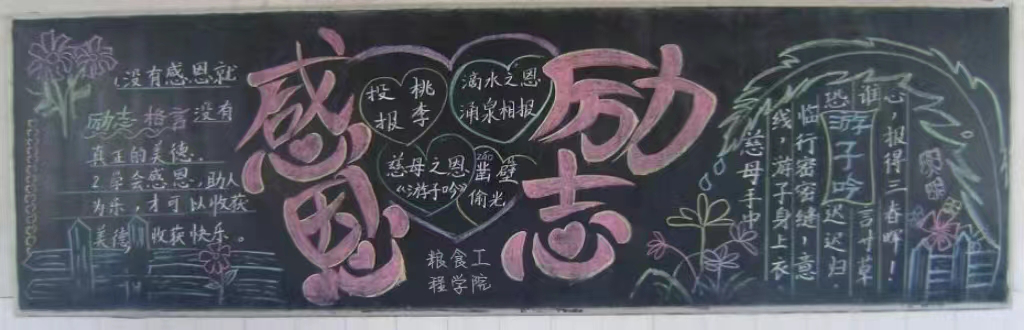 (没有感恩就
励志格言没有
真正的美德。
2.学会感恩,助人
为乐,才可以收获
美德,收获快乐。
感恩
投桃
报李
滴水之恩
涌泉相报
慈母之恩
《游子吟》
záo
凿壁
偷光
粮食工
程学院
励志
游子吟
慈母手中
线,游子身上衣
临行密密缝,意
恐迟迟归。
谁言寸草
心,报得三春晖!